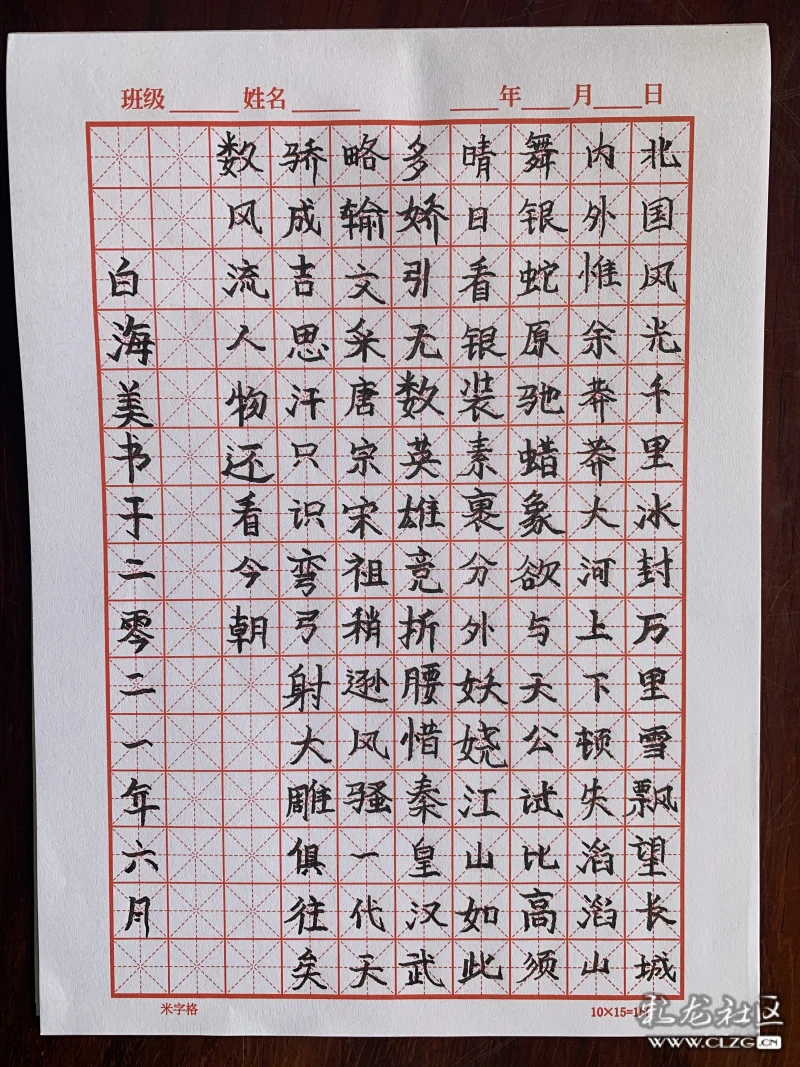 班级 姓名 年 月 日
北国风光千里冰封万里雪飘望长城
内外惟余莽莽大河上下顿失滔滔山
舞银蛇原驰蜡象欲与天公试比高须
晴日看银装素裹分外妖娆江山如此
多娇引无数英雄竞折腰惜秦皇汉武
略输文采唐宗宋祖稍逊风骚一代天
骄成吉思汗只识弯弓射大雕俱往矣
数风流人物还看今朝
白海美书于二零二一年六月
米字格
彩龙社区
WWW.CLZG.CN